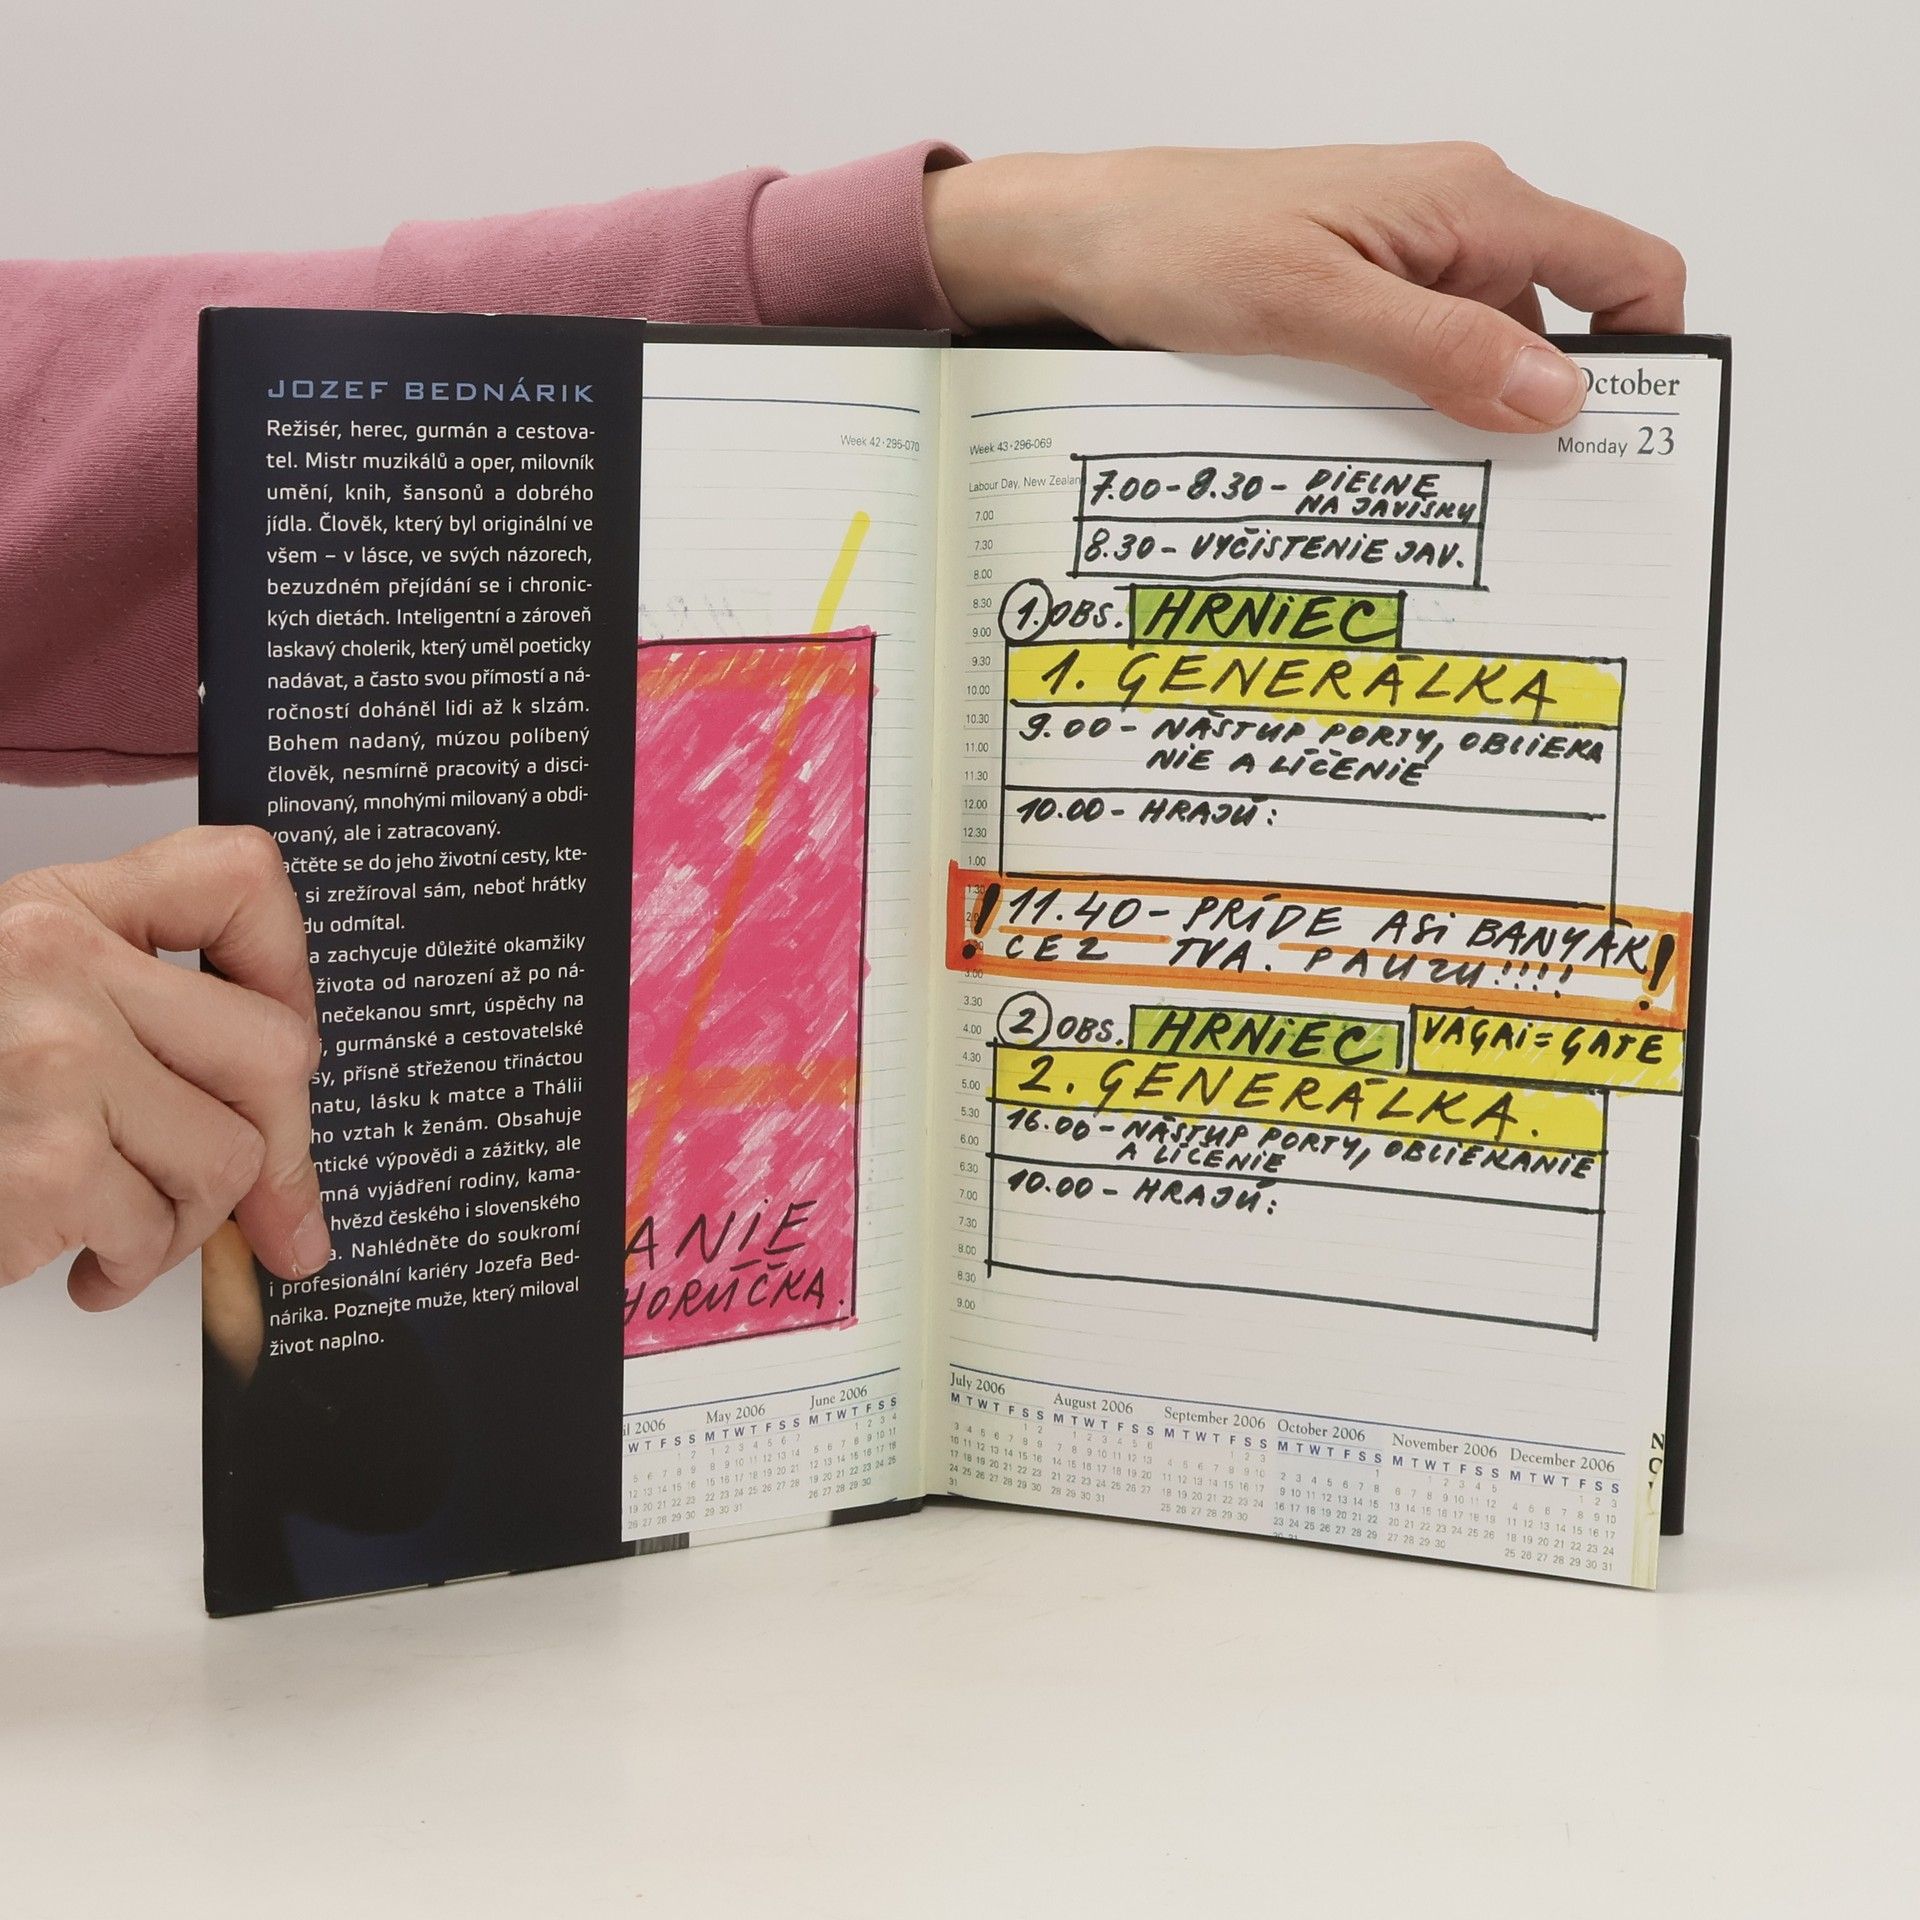 JOZEF BEDNÁRIK
Režisér, herec, gurmán a cestova-
tel. Mistr muzikálů a oper, milovník
umění, knih, šansonů a dobrého
jídla. Člověk, který byl originální ve
všem – v lásce, ve svých názorech,
bezuzdném přejídání se i chronic-
kých dietách. Inteligentní a zároveň
laskavý cholerik, který uměl poeticky
nadávat, a často svou přímostí a ná-
ročností doháněl lidi až k slzám.
Bohem nadaný, múzou políbený
člověk, nesmírně pracovitý a disci-
plinovaný, mnohými milovaný a obdi-
vovaný, ale i zatracovaný.
se do jeho životní cesty, kte-
si zrežíroval sám, neboť hrátky
odmítal.
a zachycuje důležité okamžiky
života od narození až po ná-
nečekanou smrt, úspěchy na
gurmánské a cestovatelské
přísně střeženou třináctou
lásku k matce a Thálii
vztah k ženám. Obsahuje
výpovědi a zážitky, ale
vyjádření rodiny, kama-
hvězd českého i slovenského
Nahlédněte do soukromí
i profesionální kariéry Jozefa Bed-
nárika. Poznejte muže, který miloval
život naplno.
Week 42·295-070
ANIE
HORÚČKA.
May 2006
June 2006
October
Monday 23
Week 43·296-069
Labour Day, New Zealan
7.00-8.30- DIELNE
NA JAVISKU
8.30- VYČISTENIE JAV.
1. OBS. HRNIEC
1. GENERÁLKA
9.00- NÁSTUP PORTY, OBLIEKA
NIE A LÍČENIE
10.00- HRAJÚ:
! 11.40- PRÍDE ASI BANYÁK !
CEZ TVA. PAUZU!!!!
2 OBS. HRNIEC VAGAI=GATE
2. GENERÁLKA.
16.00- NÁSTUP PORTY, OBLIEKANIE
A LÍČENIE
10.00- HRAJÚ:
7.00
7.30
8.00
8.30
9.00
9.30
10.00
10.30
11.00
11.30
12.00
12.30
1.00
3.30
4.00
4.30
5.00
5.30
6.00
6.30
7.00
7.30
8.00
8.30
9.00
July 2006
August 2006
September 2006
October 2006
November 2006
December 2006